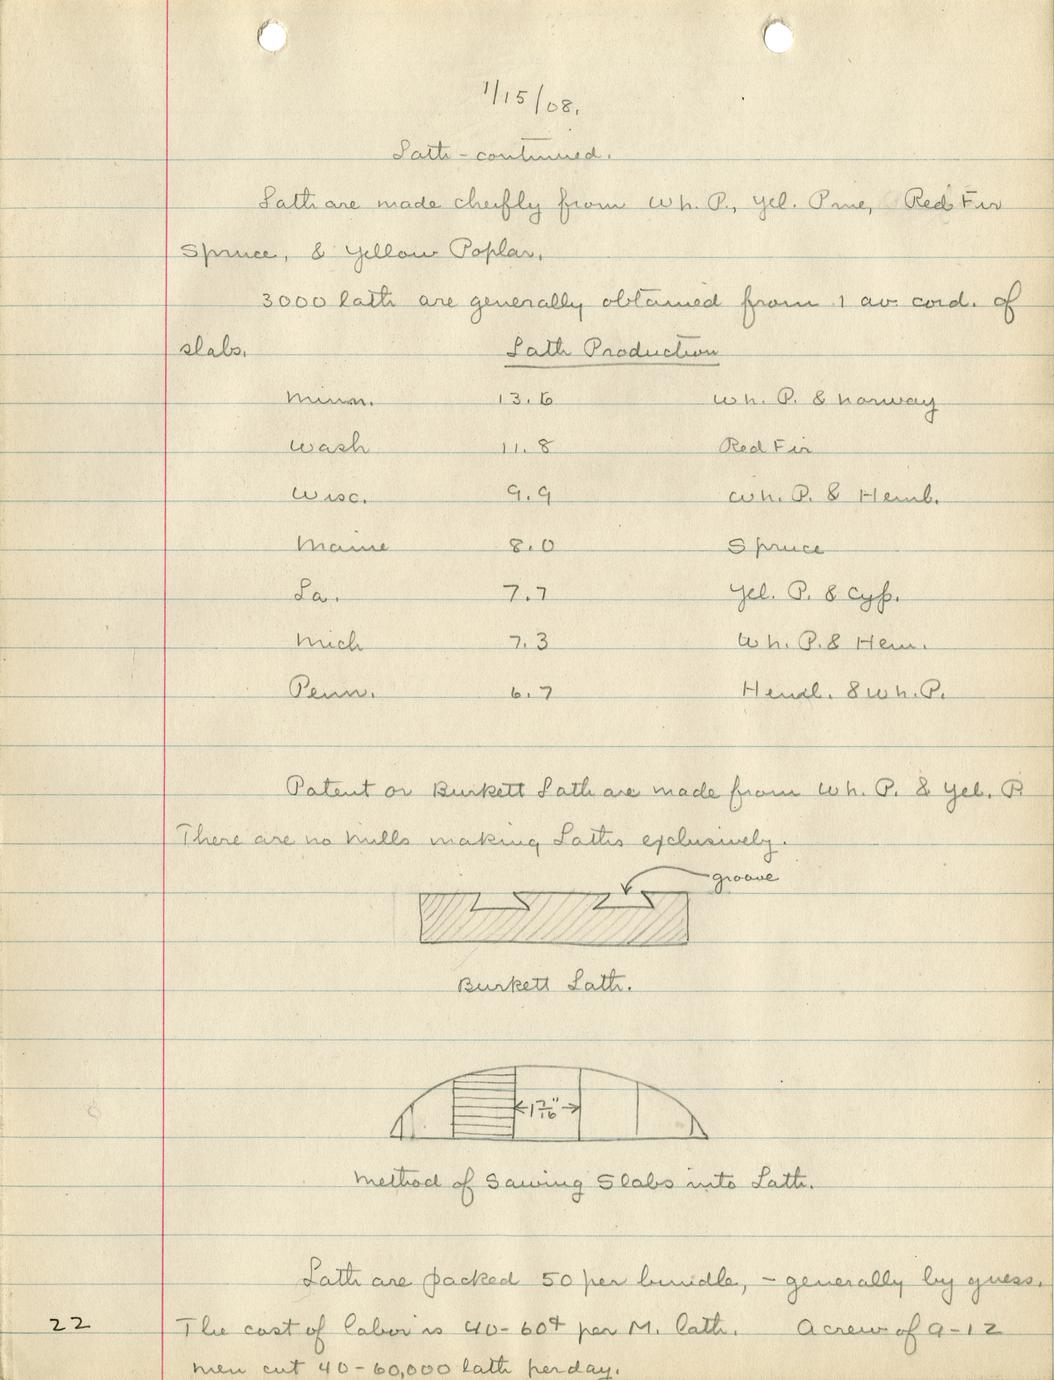 1/15/08.
Lath - continued.
Lath are made cheifly from Wh. P., Yel. Pine, Red Fir
Spruce, & Yellow Poplar.
3000 lath are generally obtained from 1 av. cord. of
slabs. Lath Production
Minn. 13.6 Wh. P. & Norway
Wash 11.8 Red Fir
Wisc. 9.9 Wh. P. & Heml.
Maine 8.0 Spruce
La. 7.7 Yel. P. & Cyp.
Mich 7.3 Wh. P. & Hem.
Penn. 6.7 Heml. & Wh. P.
Patent or Burkett Lath are made from Wh. P. & Yel. P
There are no mills making Laths exclusively.
groove
Burkett Lath.
1 7/16"
Method of Sawing Slabs into Lath.
Lath are packed 50 per bundle, - generally by guess.
22 The cost of labor is 40-60¢ per M. lath. A crew of 9-12
men cut 40-60,000 lath per day.